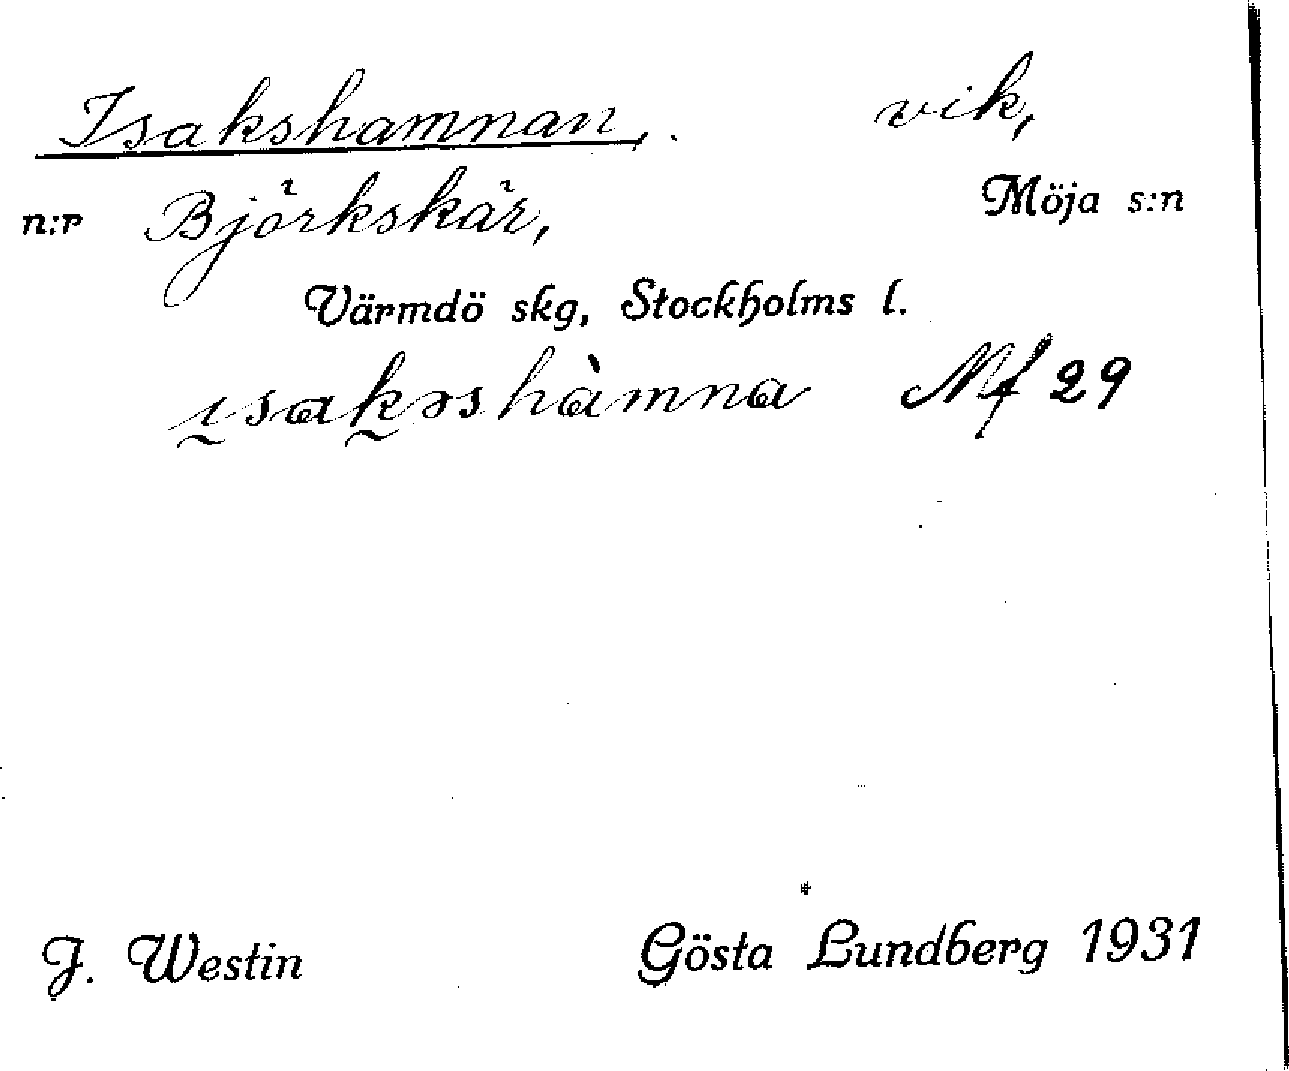 Isakshamnan, . vik,
n:r Björkskär, Möja s:n
Värmdö skg, Stockholms l.
ɩ̰sak̰əshàmna Mf 29
J. Westin Gösta Lundberg 1931